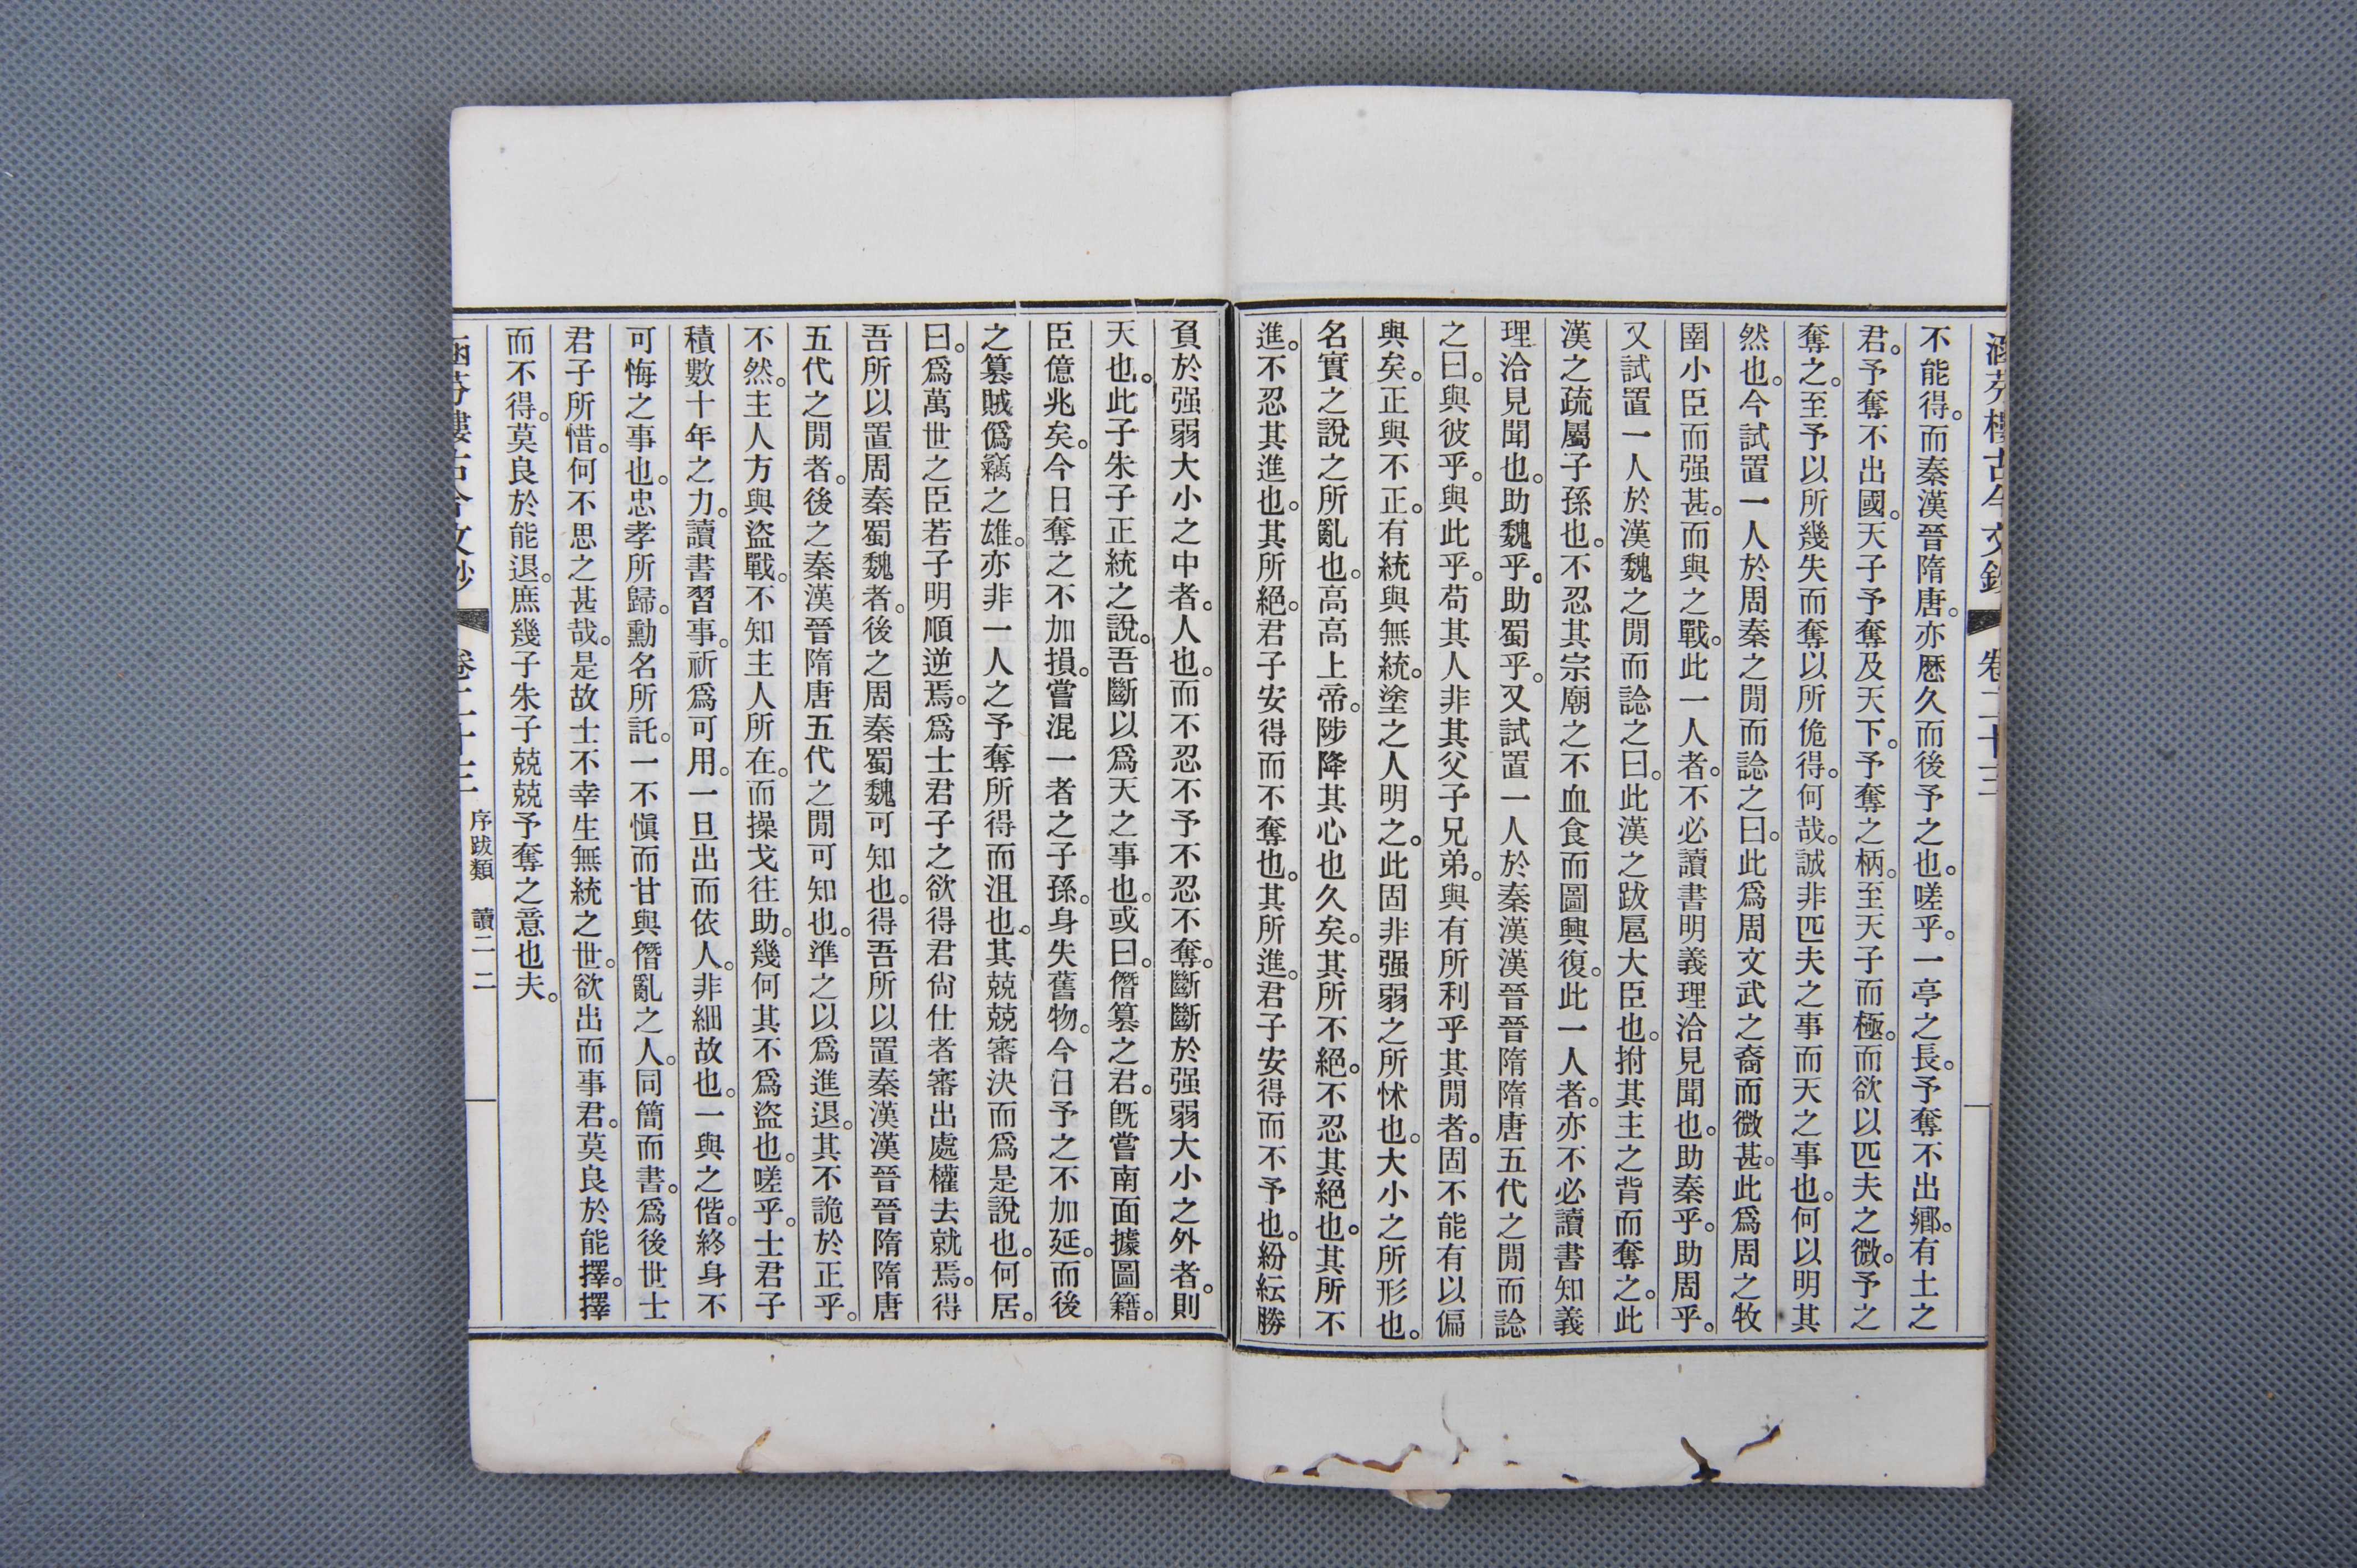 涵芬樓古今文鈔 卷二十三
不能得。而秦漢晉隋唐。亦歷久而後予之也。嗟乎。一亭之長。予奪不出鄉。有土之
君。予奪不出國。天子予奪及天下。予奪之柄。至天子而極。而欲以匹夫之微。予之
奪之。至予以所幾失而奪以所佹得。何哉。誠非匹夫之事而天之事也。何以明其
然也。今試置一人於周秦之閒而諗之曰。此爲周文武之裔而微甚。此爲周之牧
圉小臣而强甚。而與之戰。此一人者。不必讀書明義理洽見聞也。助秦乎。助周乎。
又試置一人於漢魏之閒而諗之曰。此漢之跋扈大臣也。拊其主之背而奪之。此
漢之疏屬子孫也。不忍其宗廟之不血食而圖興復。此一人者。亦不必讀書知義
理洽見聞也。助魏乎。助蜀乎。又試置一人於秦漢漢晉晉隋隋唐五代之閒而諗
之曰。與彼乎。與此乎。苟其人非其父子兄弟。與有所利乎其閒者。固不能有以偏
與矣。正與不正。有統與無統。塗之人明之。此固非强弱之所怵也。大小之所形也。
名實之說之所亂也。高高上帝。陟降其心也久矣。其所不絕。不忍其絕也。其所不
進。不忍其進也。其所絕。君子安得而不奪也。其所進。君子安得而不予也。紛紜勝
負於强弱大小之中者。人也。而不忍不予不忍不奪。斷斷於强弱大小之外者。則
天也。此子朱子正統之說。吾斷以爲天之事也。或曰。僭篡之君。旣嘗南面據圖籍。
臣億兆矣。今日奪之不加損。嘗混一者之子孫。身失舊物。今日予之不加延。而後
之篡賊僞竊之雄。亦非一人之予奪所得而沮也。其兢兢審決而爲是說也。何居。
曰。爲萬世之臣若子明順逆焉。爲士君子之欲得君尙仕者審出處權去就焉。得
吾所以置周秦蜀魏者。後之周秦蜀魏可知也。得吾所以置秦漢漢晉晉隋隋唐
五代之閒者。後之秦漢晉隋唐五代之閒可知也。準之以爲進退。其不詭於正乎。
不然。主人方與盜戰。不知主人所在。而操戈往助。幾何其不爲盜也。嗟乎。士君子
積數十年之力。讀書習事。祈爲可用。一旦出而依人。非細故也。一與之偕。終身不
可悔之事也。忠孝所歸。勳名所託。一不愼而甘與僭亂之人。同簡而書。爲後世士
君子所惜。何不思之甚哉。是故士不幸生無統之世。欲出而事君。莫良於能擇。擇
而不得。莫良於能退。庶幾子朱子兢兢予奪之意也夫。
涵芬樓古今文鈔 卷二十三 序跋類 讀二 二